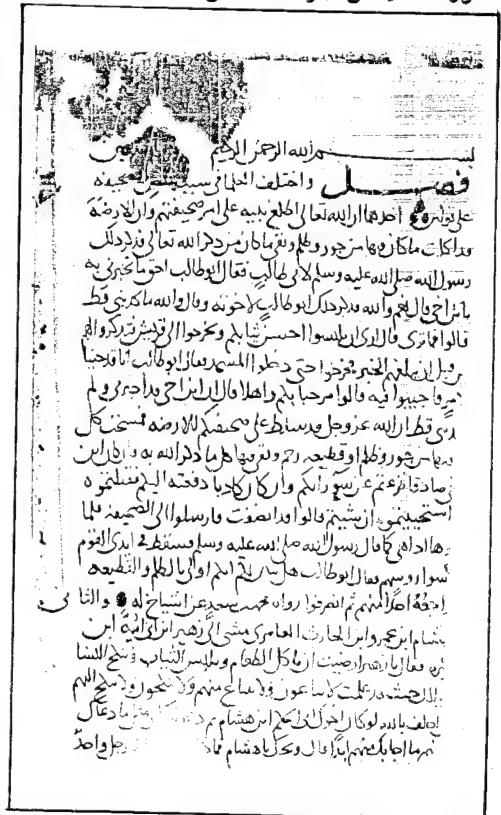 بسم الله الرحمن الرحيم
فصل واختلف العلما في سبب نقض الصحيفة
على قولين احدها ان الله تعالى اطلع نبيه على امر صحيفتهم وان الارضة
قد اكلت ما كان فيها من جور وظلم وبقي ما كان من ذكر الله تعالى فذكر ذلك
رسول الله صلى الله عليه وسلم لابي طالب فقال ابو طالب احق ما تخبرني به
يا ابن اخي قال نعم والله فذكر ذلك ابو طالب لاخوته وقال والله ما كذبني قط
قالوا فما ترى قال ارى ان تلبسوا احسن ثيابكم وتخرجوا الى قريش فتذكروا لهم
من قبل ان يبلغهم الخبر فخرجوا حتى دخلوا المسجد فقال ابو طالب انا قد جينا
لامر فاجيبوا فيه قالوا مرحبا بكم واهلا قال ان ابن اخي قد اخبرني ولم
قط ان الله عز وجل قد سلط على صحيفتكم الارضة فلحست كل
فيها من جور وظلم او قطيعة رحم وبقي فيها كل ما ذكر الله به فان كان ابن
صادقا نزعتم عن سو رأيكم وان كان كاذبا دفعته اليكم فقتلتموه
استحييتموه ان شيتم قالوا قد انصفت فارسلوا الى الصحيفة فلما
هي كما قال رسول الله صلى الله عليه وسلم فسقط في ايدي القوم
رؤسهم فقال ابو طالب هل تبين لكم انكم اولى بالظلم والقطيعة
احد منهم ثم انصرفوا رواه محمد بن سعد عن اشياخ له والثاني
هشام ابن عمرو ابن الحارث العامري مشى الى زهير ابن ابي امية ابن
فقال يا زهير ارضيت ان تاكل الطعام وتلبس الثياب وتنكح النسا
حيث قد علمت لا يباعون ولا يبتاع منهم ولا ينكحون ولا ينكح اليهم
احلف بالله لو كان اخوال ابي الحكم ابن هشام ثم دعوته
ما اجابك اليهم ابدا قال ويحك يا هشام رجل واحد